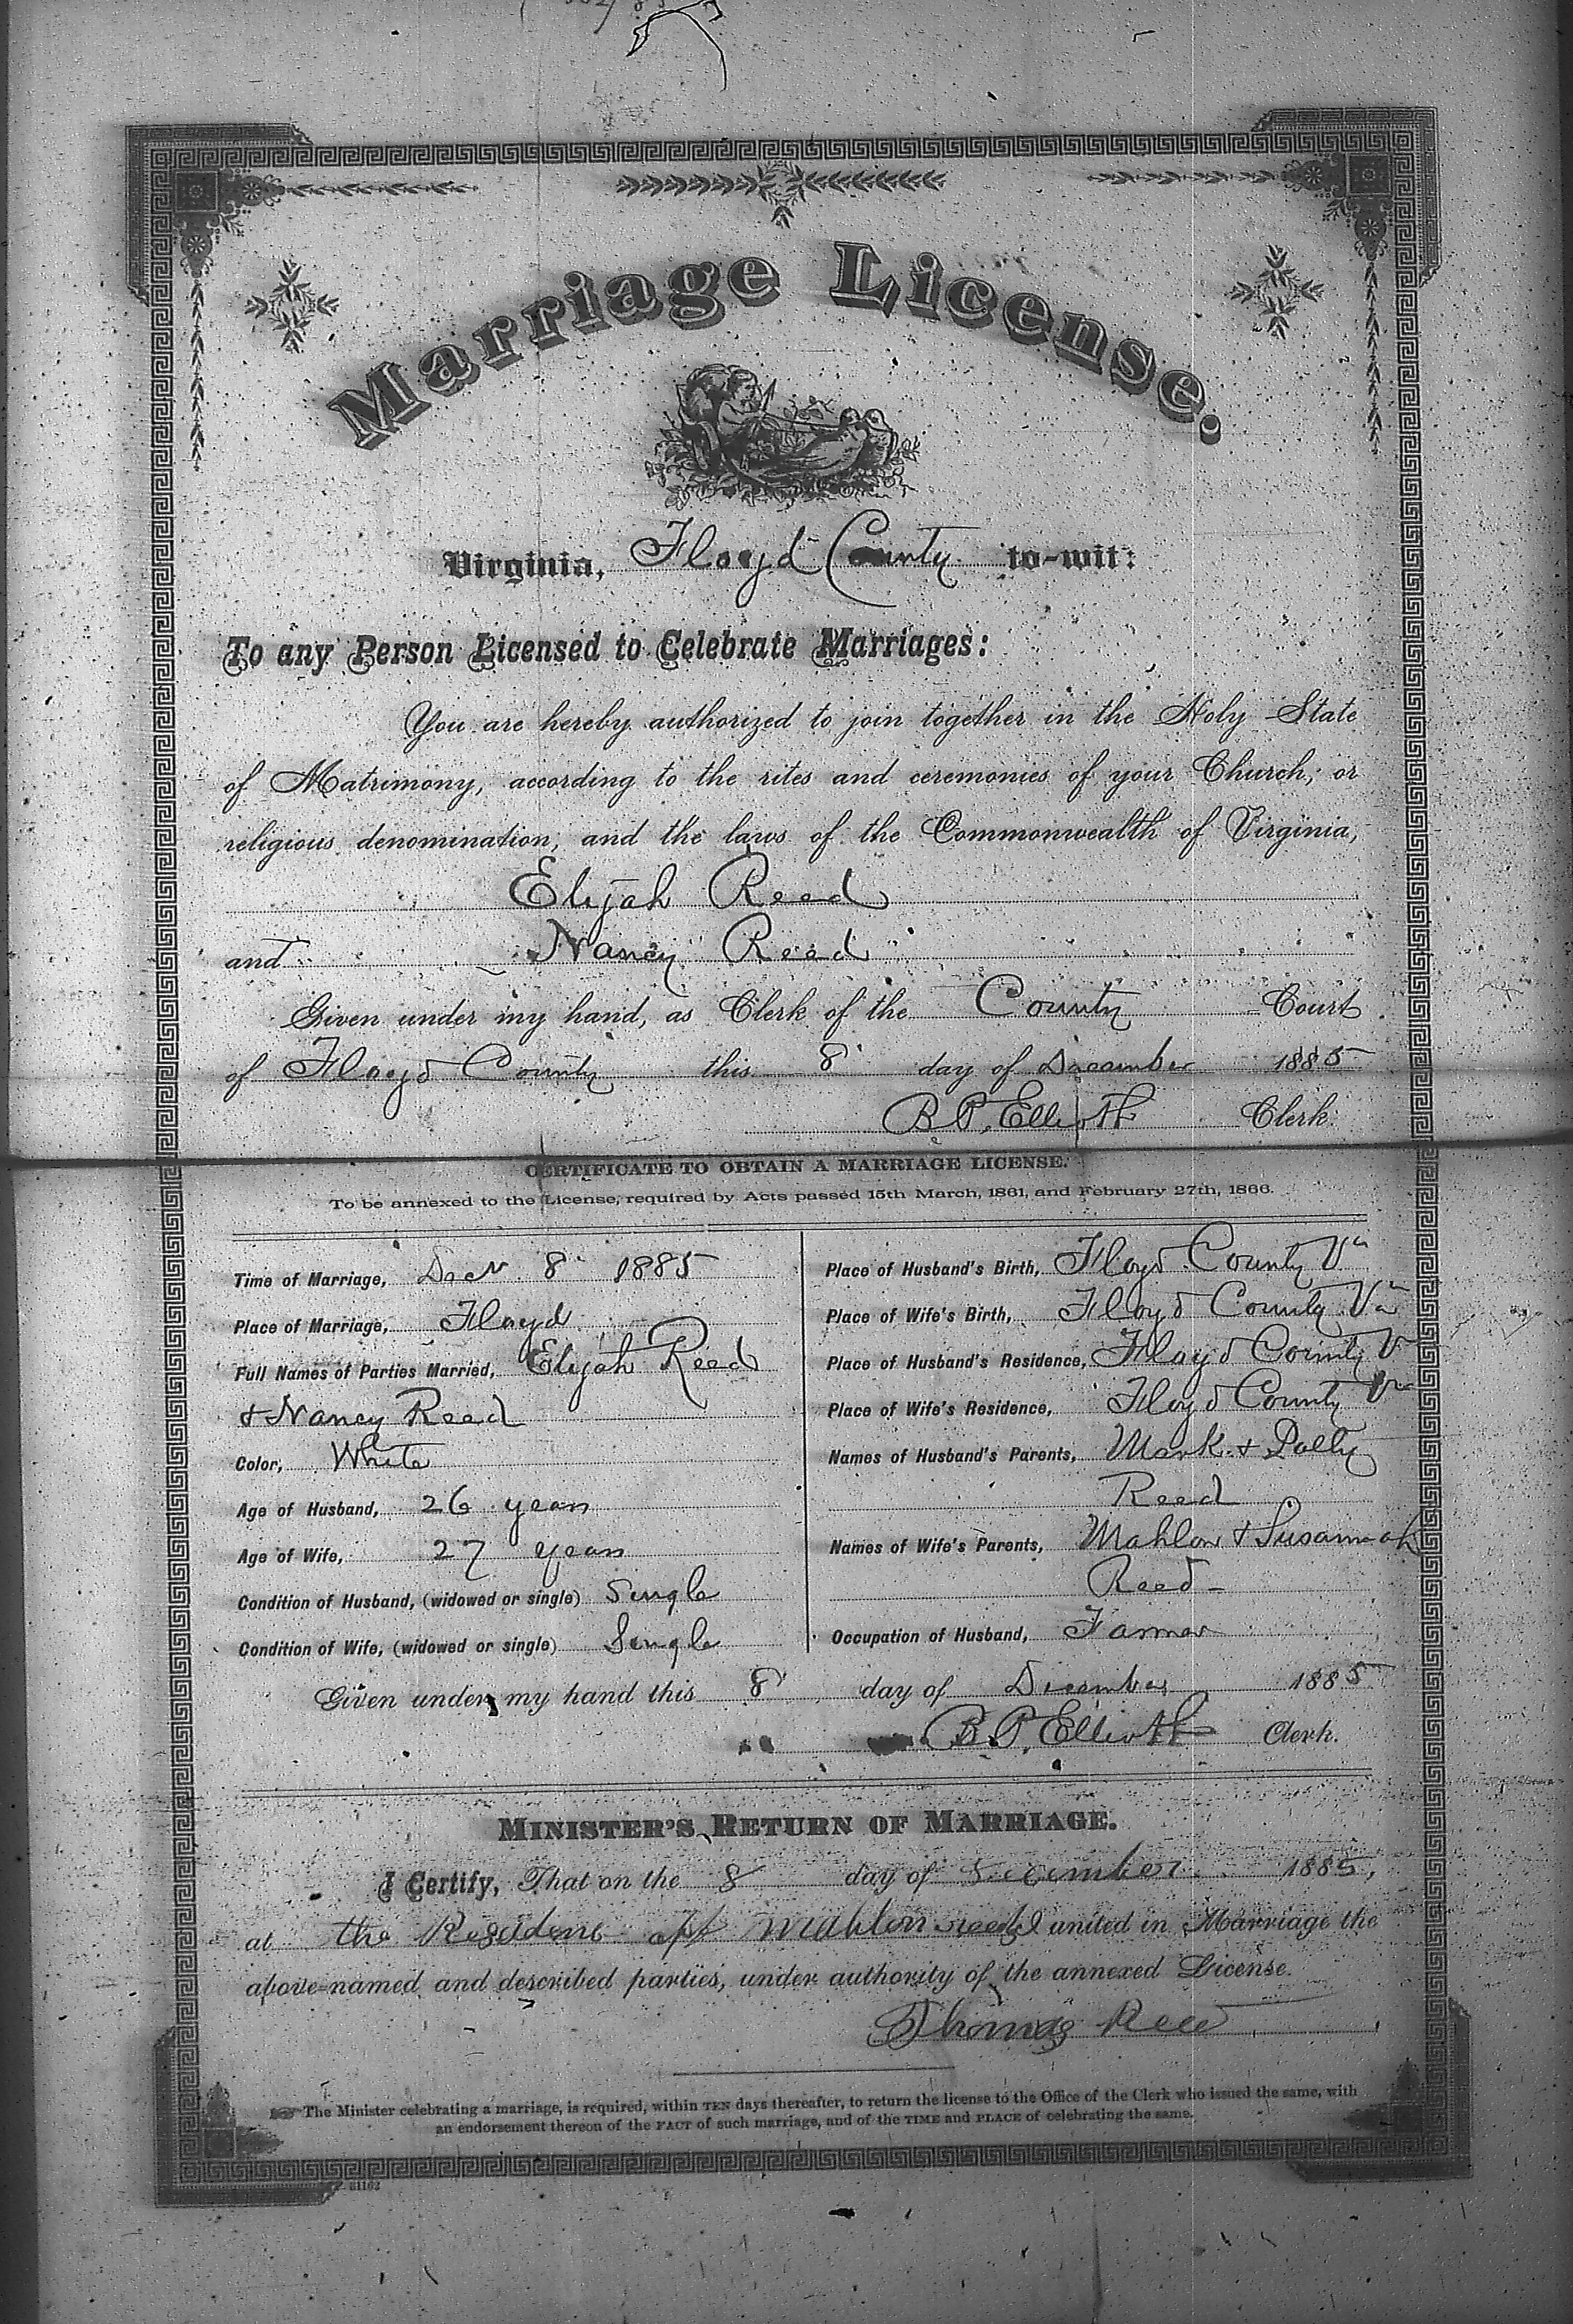 Marriage License.
Virginia, Floyd County to-wit:
To any Person Licensed to Celebrate Marriages:
You are hereby authorized to join together in the Holy State
of Matrimony, according to the rites and ceremonies of your Church, or
religious denomination, and the laws of the Commonwealth of Virginia,
Elijah Reed
and Nancy Reed
Given under my hand, as Clerk of the County Court
of Floyd County this 8 day of December 1885
B. P. Elliott Clerk.
CERTIFICATE TO OBTAIN A MARRIAGE LICENSE.
To be annexed to the License, required by Acts passed 15th March, 1861, and February 27th, 1866.
Time of Marriage, Decr 8 1885
Place of Marriage, Floyd
Full Names of Parties Married, Elijah Reed
& Nancy Reed
Color, White
Age of Husband, 26 years
Age of Wife, 27 years
Condition of Husband, (widowed or single) Single
Condition of Wife, (widowed or single) Single
Place of Husband's Birth, Floyd County Va
Place of Wife's Birth, Floyd County Va
Place of Husband's Residence, Floyd County Va
Place of Wife's Residence, Floyd County Va
Names of Husband's Parents, Mark & Polly
Reed
Names of Wife's Parents, Mahlon & Susannah
Reed
Occupation of Husband, Farmer
Given under my hand this 8 day of December 1885
B. P. Elliott Clerk.
MINISTER'S RETURN OF MARRIAGE.
I Certify, That on the 8 day of December 1885,
at the Residenc of Mahlon reed I united in Marriage the
above-named and described parties, under authority of the annexed License.
Thomas Reed
The Minister celebrating a marriage, is required, within TEN days thereafter, to return the license to the Office of the Clerk who issued the same, with
an endorsement thereon of the FACT of such marriage, and of the TIME and PLACE of celebrating the same.